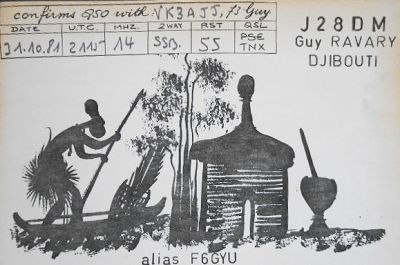 confirms QSO with: VK3AJJ, fs Guy
DATE U.T.C. MHZ. 2WAY RST QSL
31.10.81 2115 14 SSB. 55 PSE TNX
J28DM
Guy RAVARY
DJIBOUTI
alias F6GYU